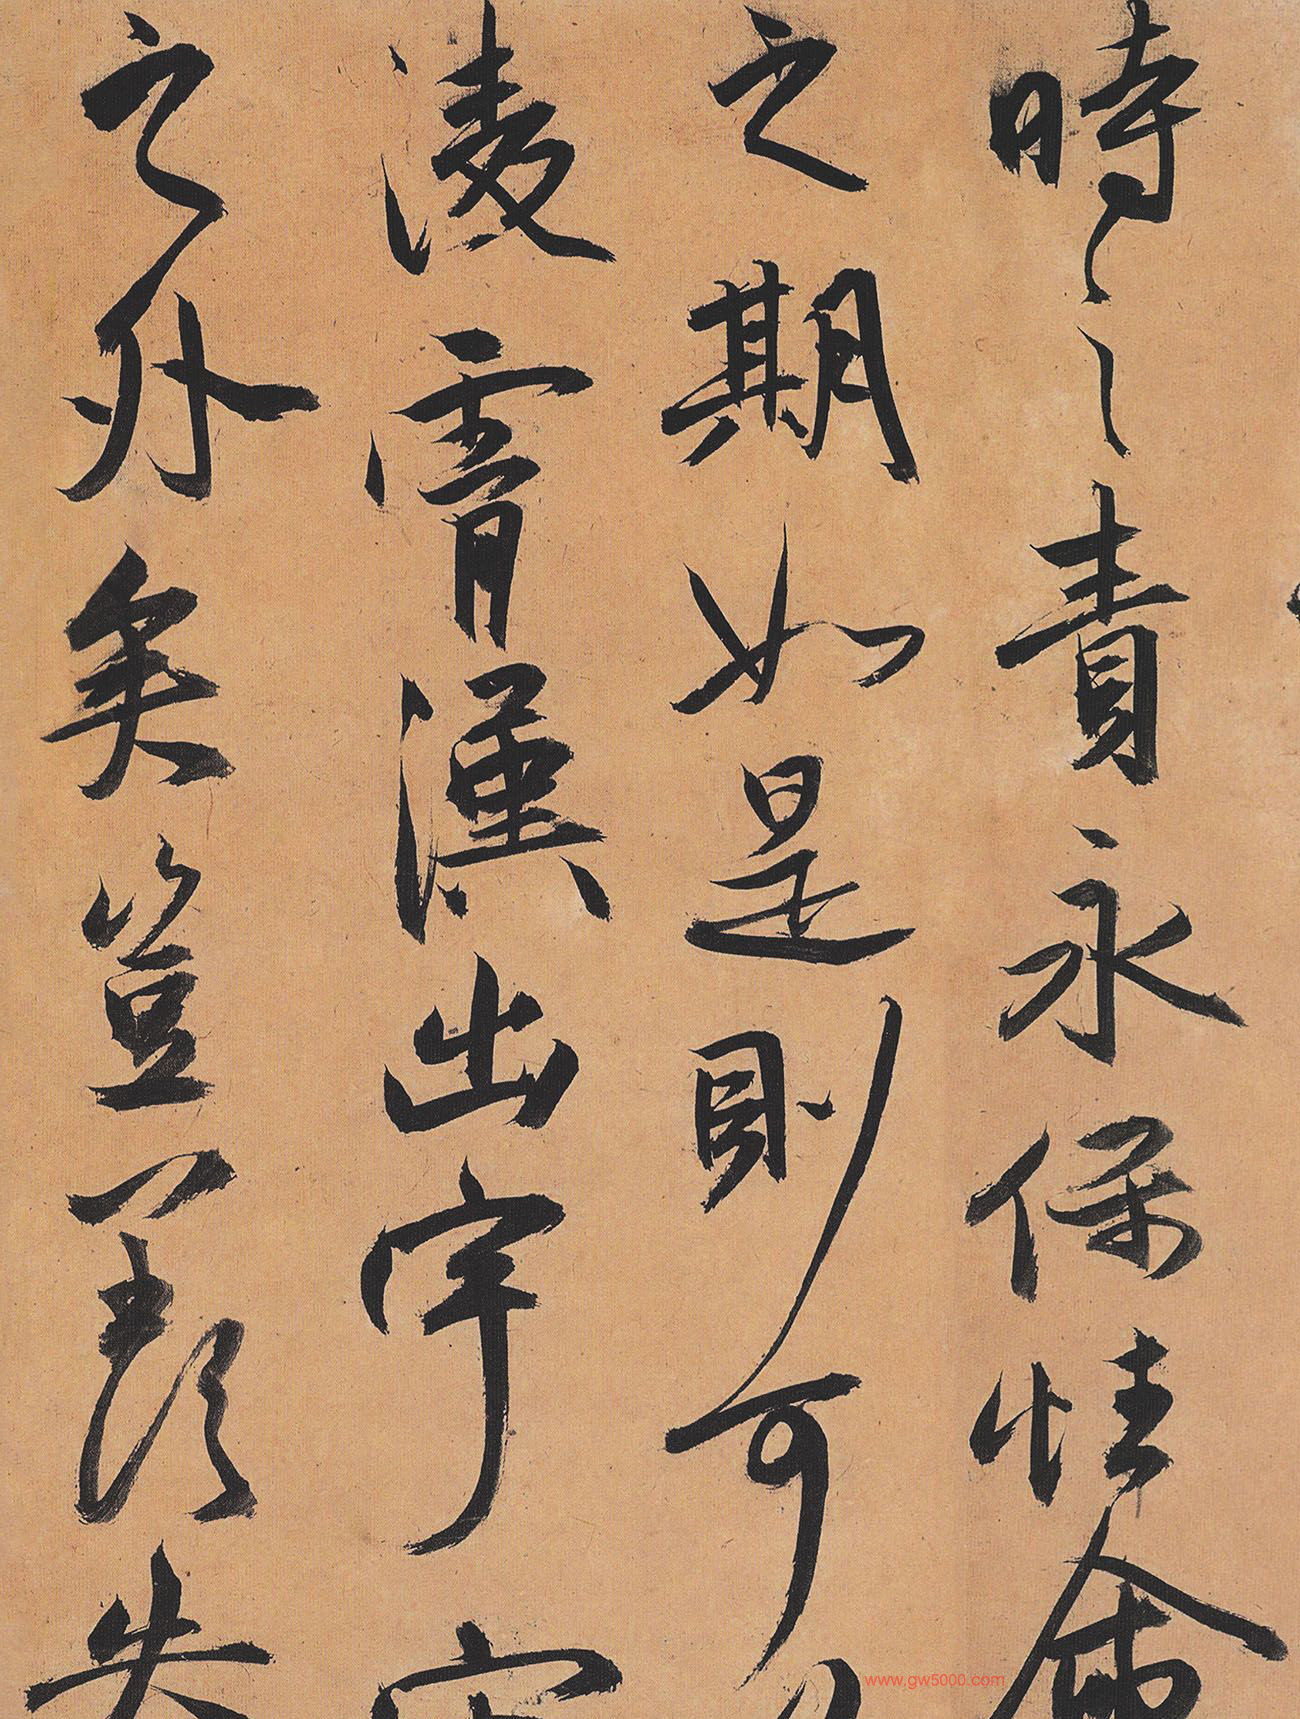 時之責永保性命
之期如是則可以
凌霄漢出宇宙
之外矣豈羡夫
www.gw5000.com